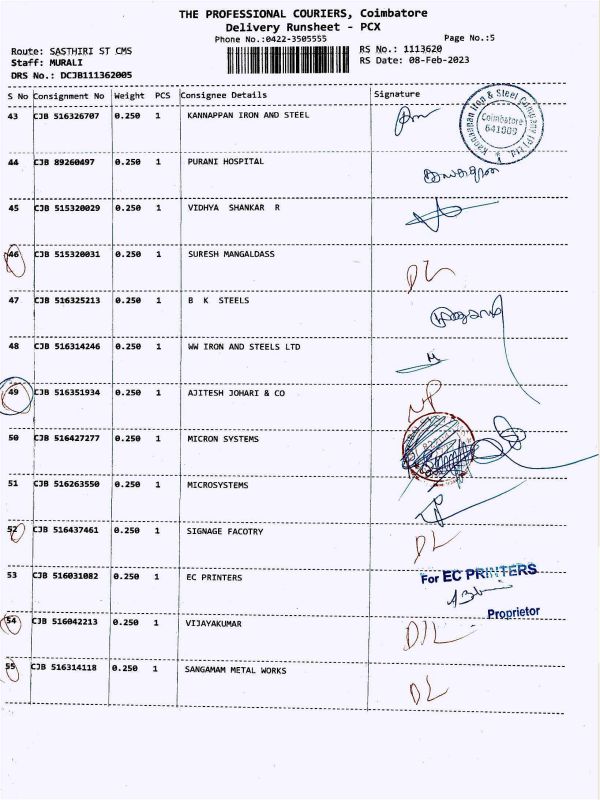 THE PROFESSIONAL COURIERS, Coimbatore
Delivery Runsheet - PCX
Phone No.:0422-3505555
Page No.:5
Route: SASTHIRI ST CMS
RS No.: 1113620
Staff: MURALI
RS Date: 08-Feb-2023
DRS No.: DCJB111362005
S No Consignment No Weight PCS Consignee Details Signature
43 CJB 516326707 0.250 1 KANNAPPAN IRON AND STEEL
Kannappan Iron & Steel Company (P) Ltd.
Coimbatore
641009
44 CJB 89260497 0.250 1 PURANI HOSPITAL
45 CJB 515320029 0.250 1 VIDHYA SHANKAR R
46 CJB 515320031 0.250 1 SURESH MANGALDASS
DL
47 CJB 516325213 0.250 1 B K STEELS
48 CJB 516314246 0.250 1 WW IRON AND STEELS LTD
49 CJB 516351934 0.250 1 AJITESH JOHARI & CO
NP
50 CJB 516427277 0.250 1 MICRON SYSTEMS
51 CJB 516263550 0.250 1 MICROSYSTEMS
52 CJB 516437461 0.250 1 SIGNAGE FACOTRY
DL
53 CJB 516031082 0.250 1 EC PRINTERS
For EC PRINTERS
Proprietor
54 CJB 516042213 0.250 1 VIJAYAKUMAR
D/L
55 CJB 516314118 0.250 1 SANGAMAM METAL WORKS
DL